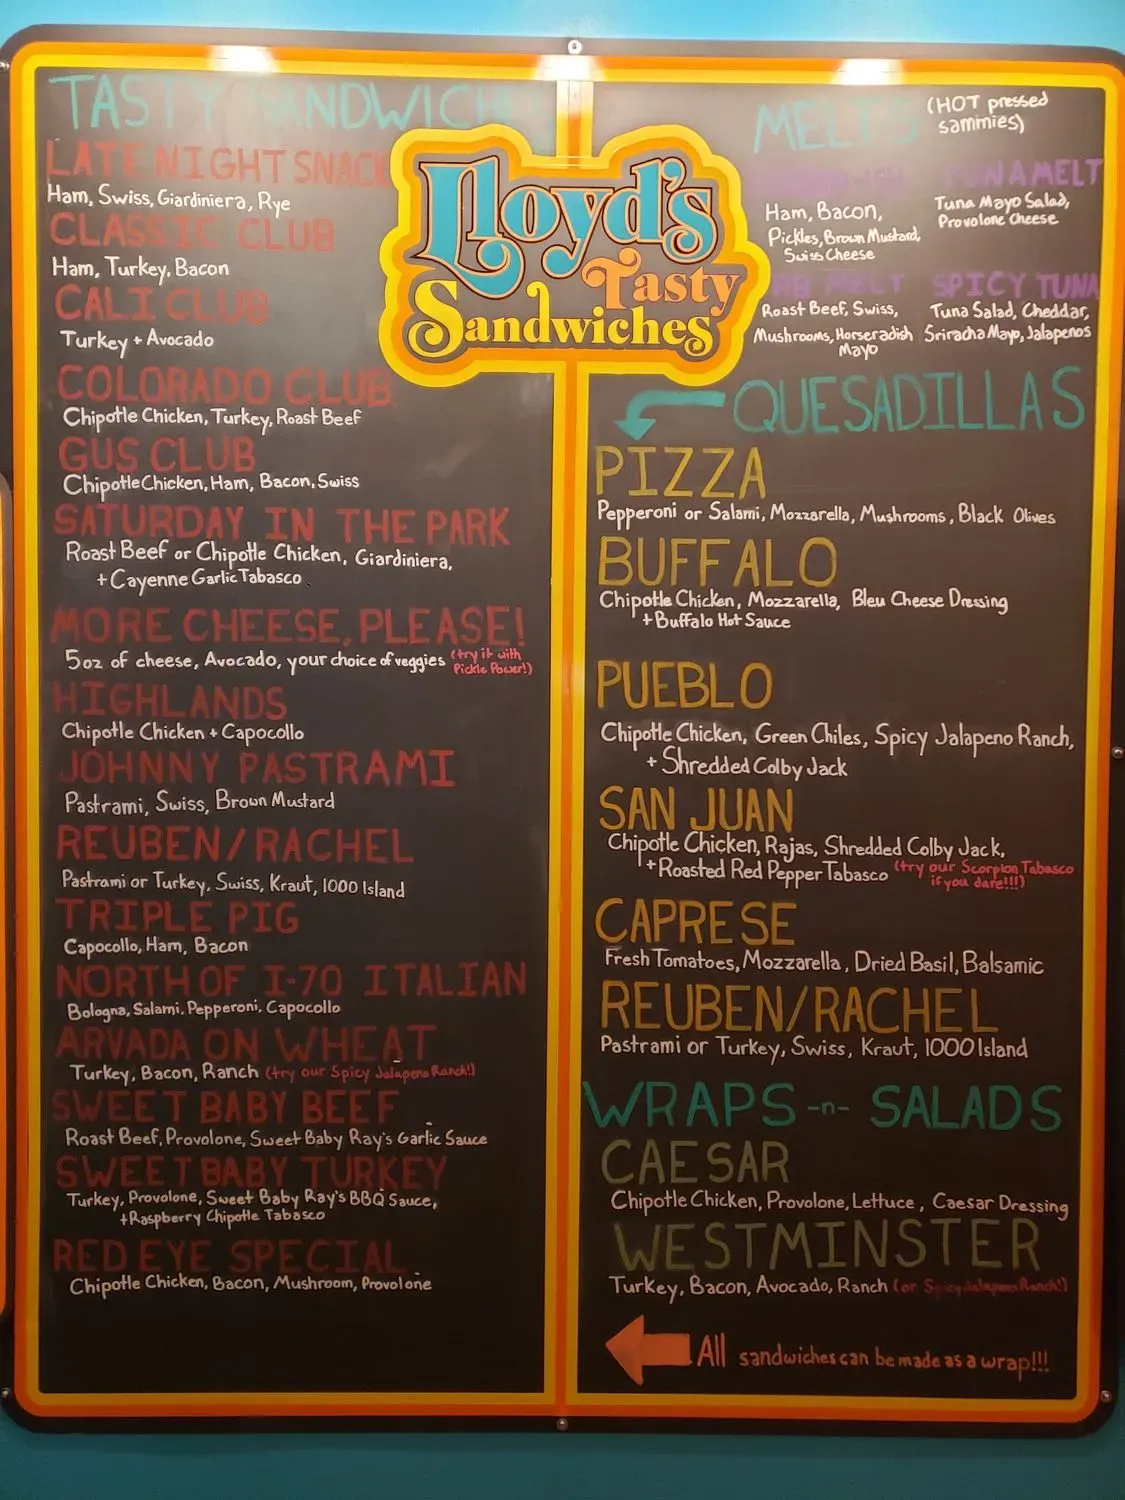 TASTY SANDWICH
LATE NIGHT SNACK
Ham, Swiss, Giardiniera, Rye
CLASSIC CLUB
Ham, Turkey, Bacon
CALI CLUB
Turkey + Avocado
COLORADO CLUB
Chipotle Chicken, Turkey, Roast Beef
GUS CLUB
Chipotle Chicken, Ham, Bacon, Swiss
SATURDAY IN THE PARK
Roast Beef or Chipotle Chicken, Giardiniera,
+ Cayenne Garlic Tabasco
MORE CHEESE, PLEASE!
5oz of cheese, Avocado, your choice of veggies (try it with
Pickle Power!)
HIGHLANDS
Chipotle Chicken + Capocollo
JOHNNY PASTRAMI
Pastrami, Swiss, Brown Mustard
REUBEN/RACHEL
Pastrami or Turkey, Swiss, Kraut, 1000 Island
TRIPLE PIG
Capocollo, Ham, Bacon
NORTH OF I-70 ITALIAN
Bologna, Salami, Pepperoni, Capocollo
ARVADA ON WHEAT
Turkey, Bacon, Ranch (try our Spicy Jalapeno Ranch!)
SWEET BABY BEEF
Roast Beef, Provolone, Sweet Baby Ray's Garlic Sauce
SWEET BABY TURKEY
Turkey, Provolone, Sweet Baby Ray's BBQ Sauce,
+Raspberry Chipotle Tabasco
RED EYE SPECIAL
Chipotle Chicken, Bacon, Mushroom, Provolone
Lloyd's
Tasty
Sandwiches
MELTS (HOT pressed
sammies)
Ham, Bacon,
Pickles, Brown Mustard,
Swiss Cheese
TUNA MELT
Tuna Mayo Salad,
Provolone Cheese
MELT
Roast Beef, Swiss,
Mushrooms, Horseradish
Mayo
SPICY TUNA
Tuna Salad, Cheddar,
Sriracha Mayo, Jalapenos
QUESADILLAS
PIZZA
Pepperoni or Salami, Mozzarella, Mushrooms, Black Olives
BUFFALO
Chipotle Chicken, Mozzarella, Bleu Cheese Dressing
+ Buffalo Hot Sauce
PUEBLO
Chipotle Chicken, Green Chiles, Spicy Jalapeno Ranch,
+ Shredded Colby Jack
SAN JUAN
Chipotle Chicken, Rajas, Shredded Colby Jack,
+ Roasted Red Pepper Tabasco (try our Scorpion Tabasco
if you dare!!!)
CAPRESE
Fresh Tomatoes, Mozzarella, Dried Basil, Balsamic
REUBEN/RACHEL
Pastrami or Turkey, Swiss, Kraut, 1000 Island
WRAPS -n- SALADS
CAESAR
Chipotle Chicken, Provolone, Lettuce, Caesar Dressing
WESTMINSTER
Turkey, Bacon, Avocado, Ranch (or Spicy Jalapeno Ranch!)
All sandwiches can be made as a wrap!!!